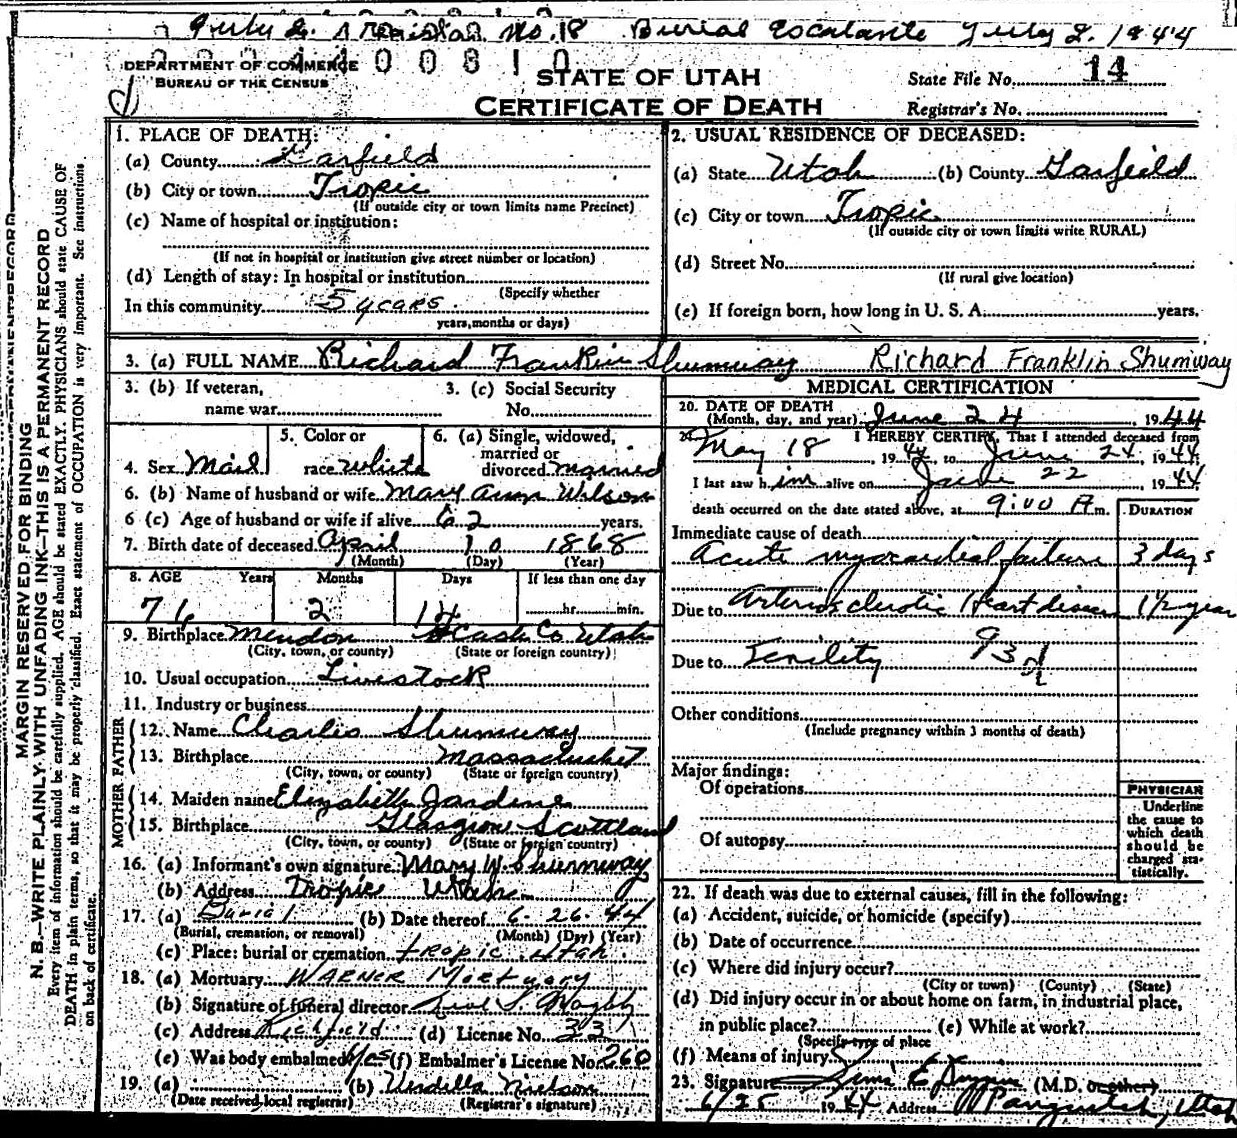 July 2. Registrar No. 18 Burial Escalante July 2. 1944
DEPARTMENT OF COMMERCE
BUREAU OF THE CENSUS
STATE OF UTAH
CERTIFICATE OF DEATH
State File No. 14
Registrar's No.
MARGIN RESERVED FOR BINDING
N. B.—WRITE PLAINLY, WITH UNFADING INK—THIS IS A PERMANENT RECORD
Every item of information should be carefully supplied. AGE should be stated EXACTLY. PHYSICIANS should state CAUSE OF
DEATH in plain terms, so that it may be properly classified. Exact statement of OCCUPATION is very important. See instructions
on back of certificate.
1. PLACE OF DEATH:
(a) County Garfield
(b) City or town Tropic
(If outside city or town limits name Precinct)
(c) Name of hospital or institution:
(If not in hospital or institution give street number or location)
(d) Length of stay: In hospital or institution
(Specify whether
In this community 5 years.
years, months or days)
2. USUAL RESIDENCE OF DECEASED:
(a) State Utah (b) County Garfield
(c) City or town Tropic
(If outside city or town limits write RURAL)
(d) Street No.
(If rural give location)
(e) If foreign born, how long in U. S. A. years.
3. (a) FULL NAME Richard Franklin Shumway Richard Franklin Shumway
3. (b) If veteran, 3. (c) Social Security
name war No.
4. Sex Mail 5. Color or race White 6. (a) Single, widowed, married or divorced married
6. (b) Name of husband or wife Mary Ann Wilson
6 (c) Age of husband or wife if alive 62 years.
7. Birth date of deceased April 10 1868
(Month) (Day) (Year)
8. AGE Years Months Days If less than one day
76 2 14 hr. min.
9. Birthplace Mendon Cash Co Utah
(City, town, or county) (State or foreign country)
10. Usual occupation Livestock
11. Industry or business
FATHER
12. Name Charles Shumway
13. Birthplace Massachuset
(City, town, or county) (State or foreign country)
MOTHER
14. Maiden name Elizabeth Jardine
15. Birthplace Glasgow Scottland
(City, town, or county) (State or foreign country)
16. (a) Informant's own signature Mary W. Shumway
(b) Address Tropic Utah
17. (a) Burial (b) Date thereof 6-26-44
(Burial, cremation, or removal) (Month) (Day) (Year)
(c) Place: burial or cremation Tropic Utah.
18. (a) Mortuary WARNER Mortuary
(b) Signature of funeral director
(c) Address Richfield. (d) License No. 33
(e) Was body embalmed Yes (f) Embalmer's License No. 260
19. (a) (b) Urdilla Nielson
(Date received local registrar) (Registrar's signature)
MEDICAL CERTIFICATION
20. DATE OF DEATH
(Month, day, and year) June 24, 1944
21. I HEREBY CERTIFY, That I attended deceased from
May 18, 1944, to June 24, 1944;
I last saw him alive on June 22 1944
death occurred on the date stated above, at 9:00 A m.
DURATION
Immediate cause of death
Acute myocardial failure 3 days
Due to Arteriosclerotic Heart disease 1½ year
Due to Senility 93d
Other conditions
(Include pregnancy within 3 months of death)
Major findings:
Of operations
Of autopsy
PHYSICIAN
Underline
the cause to
which death
should be
charged sta-
tistically.
22. If death was due to external causes, fill in the following:
(a) Accident, suicide, or homicide (specify)
(b) Date of occurrence
(c) Where did injury occur?
(City or town) (County) (State)
(d) Did injury occur in or about home on farm, in industrial place,
in public place? (e) While at work?
(Specify type of place
(f) Means of injury
23. Signature (M.D. or other)
6/25 1944 Address Panguitch, Utah